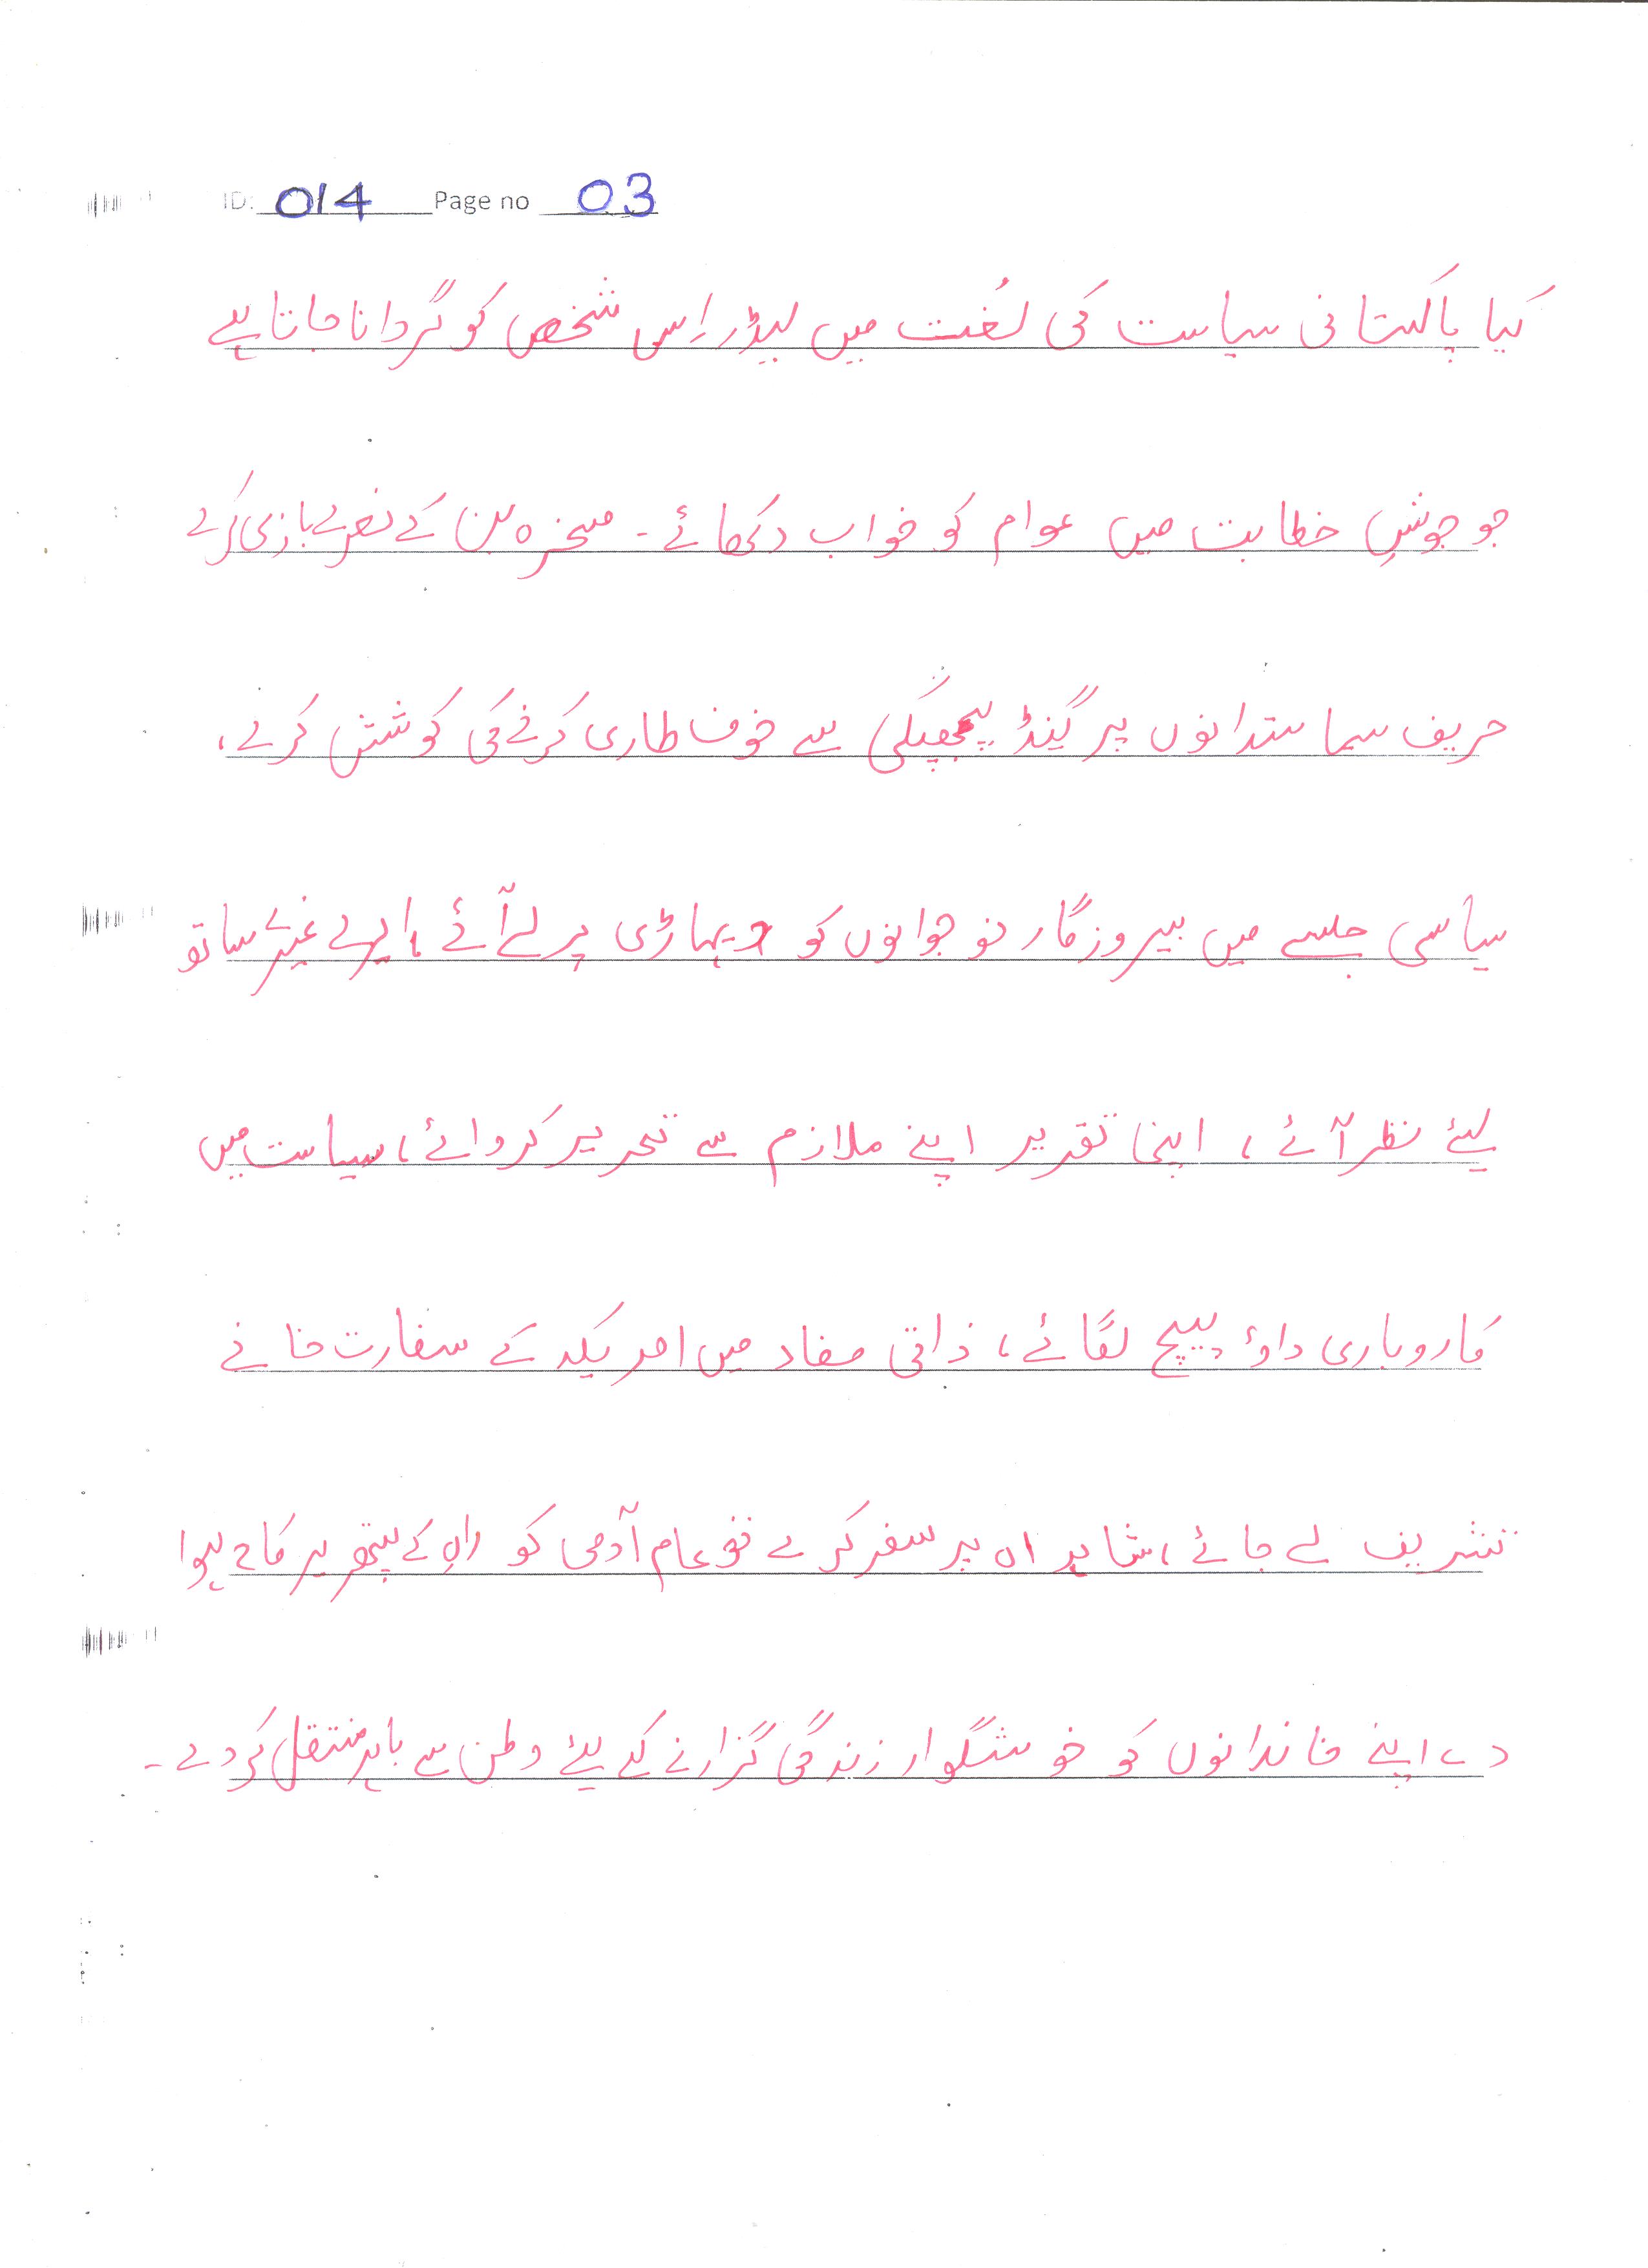 ID: 014 Page no 03
کیا پاکستانی سیاست کی لُغت میں لیڈر اِس شخص کو گردانا جاتا ہے
جو جوشِ خطابت میں عوام کو خواب دکھائے۔ مسخرہ بن کے نعرے بازی کرے
حریف سیاستدانوں پر گینڈ بھپکی سے خوف طاری کرنے کی کوشش کرے،
سیاسی جلسے میں بیروزگار نوجوانوں کو دیہاڑی پر لے آئے، ایرے غیرے ساتھ
لیئے نظر آئے، اپنی تقریر اپنے ملازم سے تحریر کروائے، سیاست میں
کاروباری داؤ پیچ لگائے، ذاتی مفاد میں امریکہ کے سفارت خانے
تشریف لے جائے، شاہراہ پر سفر کرے تو عام آدمی کو راہ کے پتھر پر ہوا
دے اپنے خاندانوں کو خوشگوار زندگی گزارنے کے لیئے وطن سے باہر منتقل کر دے۔